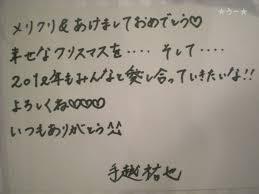 ☆うー☆
メリクリ&あけましておめでとう♡
幸せなクリスマスを‥‥ そして‥‥
2012年もみんなと愛し合っていきたいな!!
よろしくね♡♡♡
いつもありがとう^^
手越祐也